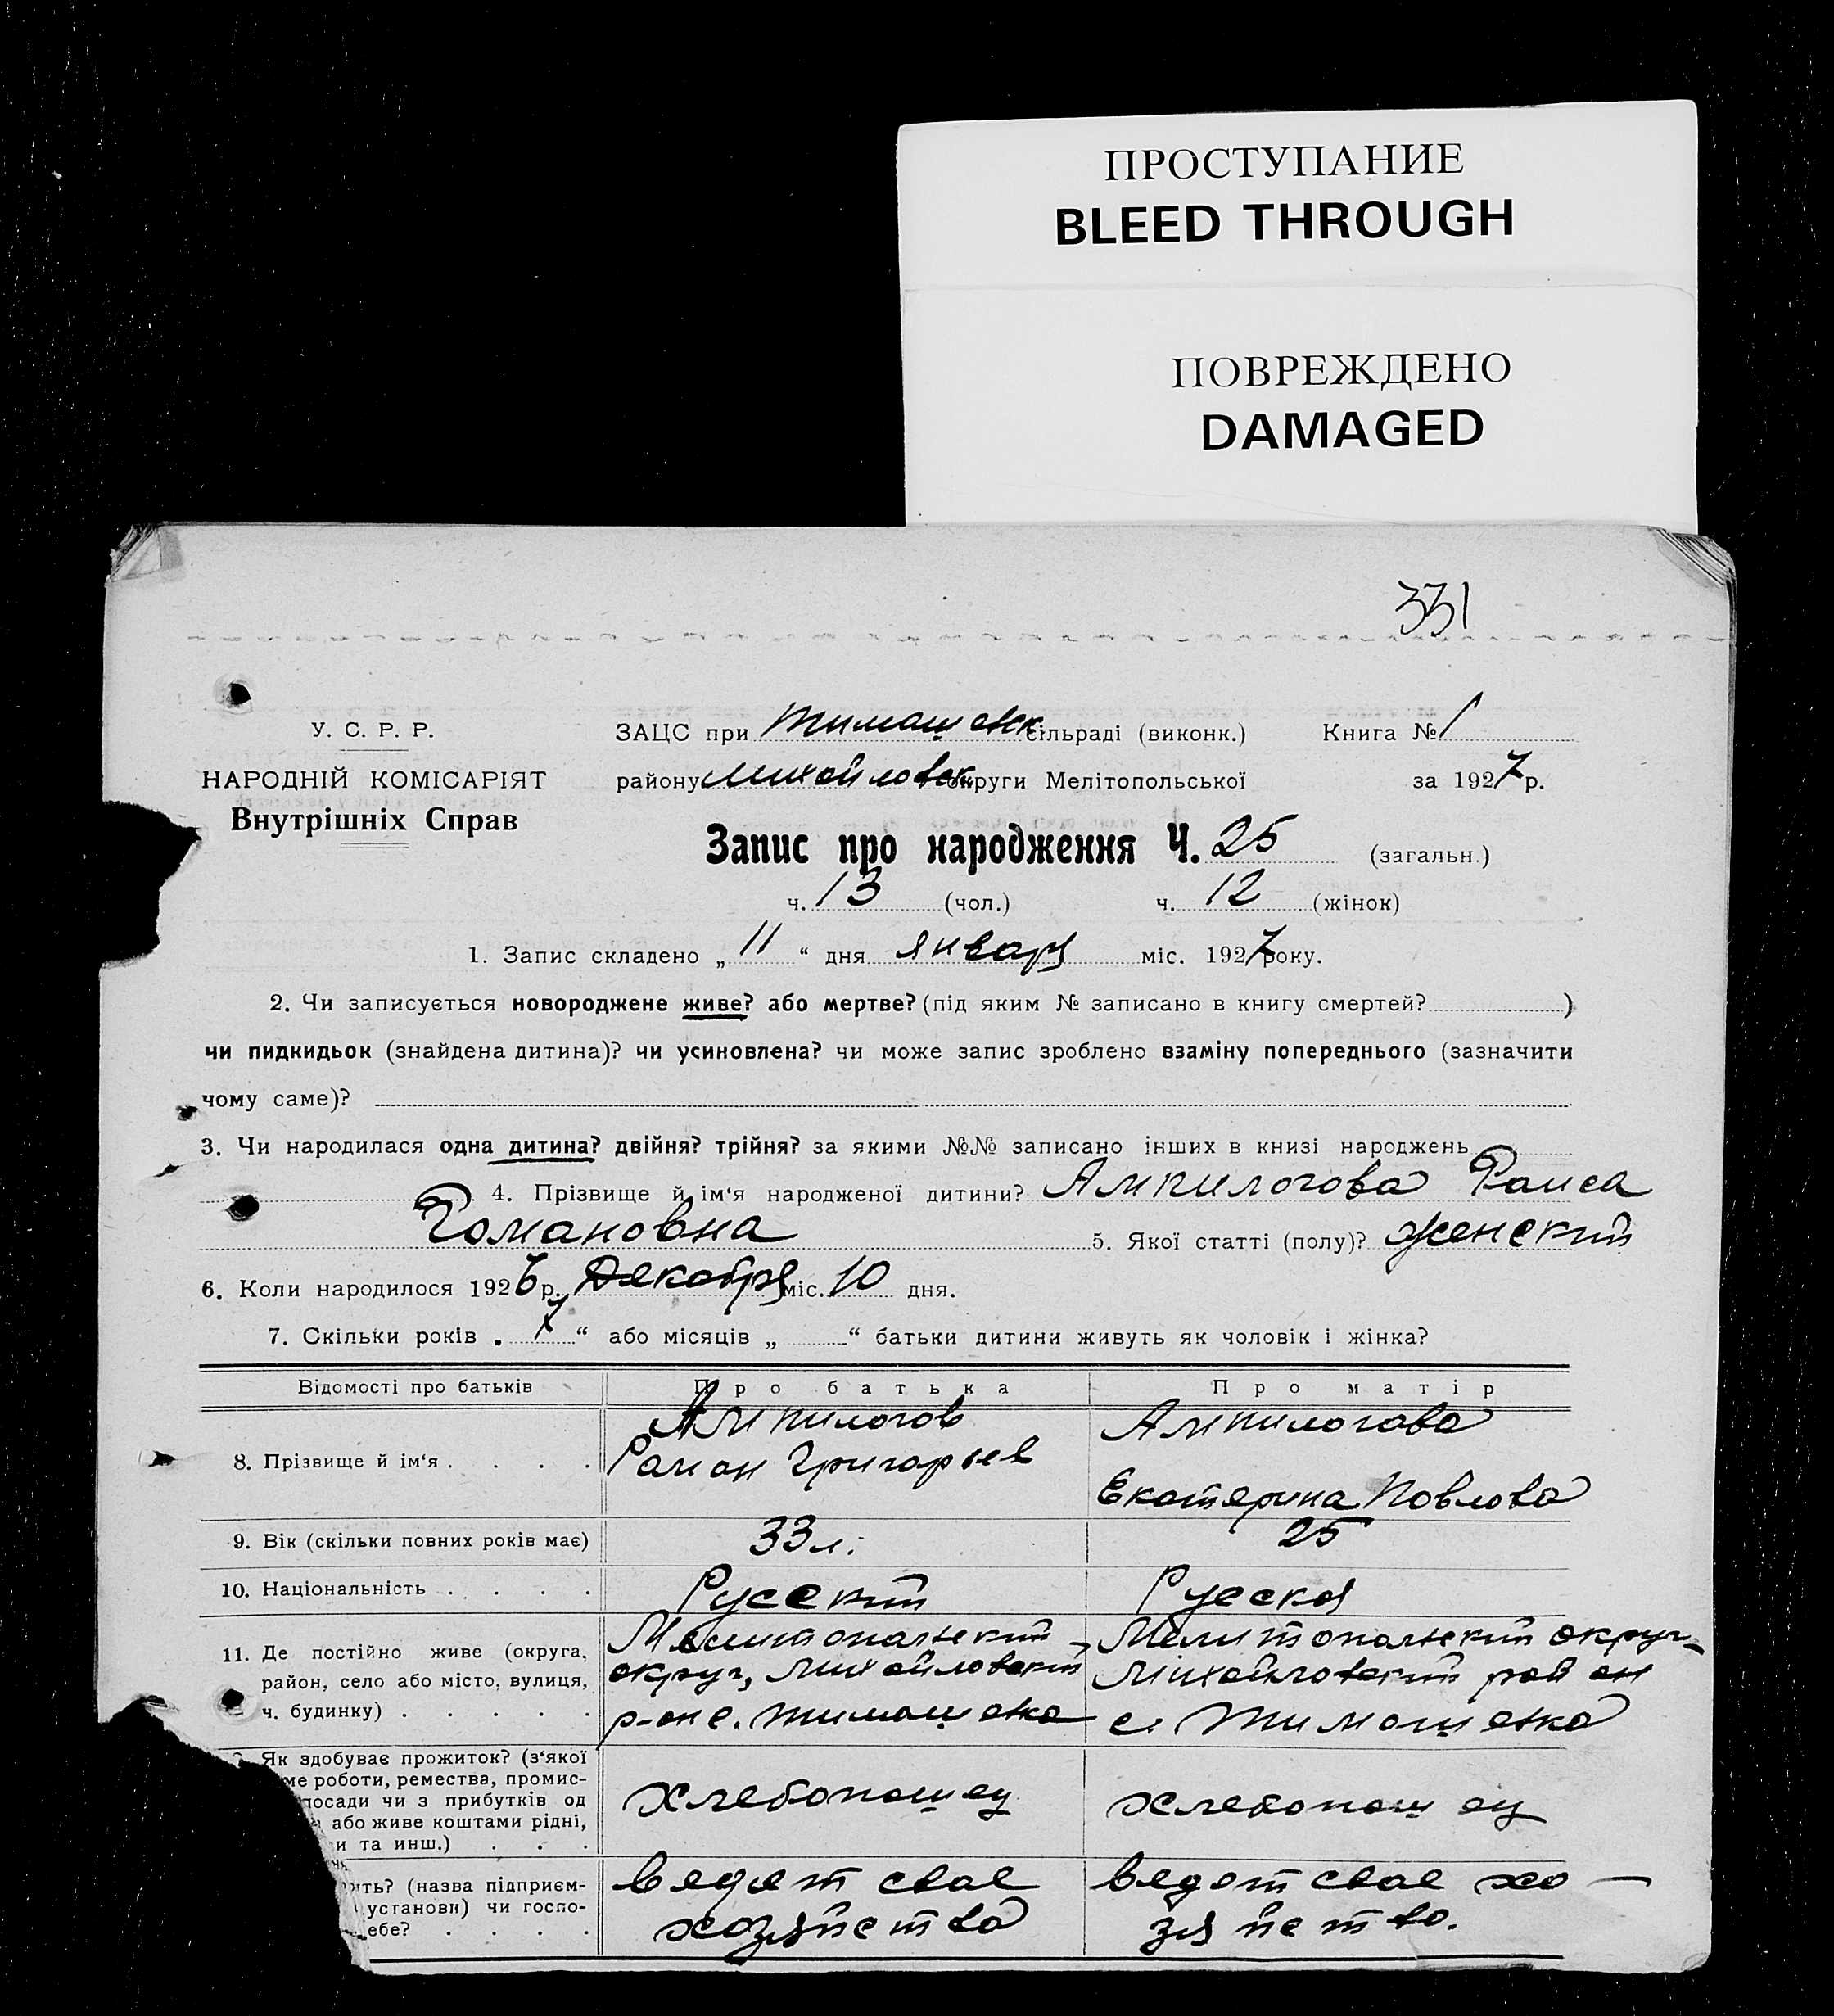 ПРОСТУПАНИЕ
BLEED THROUGH
ПОВРЕЖДЕНО
DAMAGED
331
У. С. Р. Р.
ЗАЦС при Тимошевк. сільраді (виконк.) Книга № 1
НАРОДНІЙ КОМІСАРІЯТ
району Михайловск. округи Мелітопольської за 1927 р.
Внутрішніх Справ
Запис про народження Ч. 25 (загальн.)
ч. 13 (чол.) ч. 12 (жінок)
1. Запис складено „ 11 “ дня января міс. 1927 року.
2. Чи записується новороджене живе? або мертве? (під яким № записано в книгу смертей? )
чи пидкидьок (знайдена дитина)? чи усиновлена? чи може запис зроблено взаміну попереднього (зазначити
чому саме)?
3. Чи народилася одна дитина? двійня? трійня? за якими №№ записано інших в книзі народжень
4. Прізвище й ім'я народженої дитини? Ампилогова Раиса
Романовна 5. Якої статті (полу)? женский
6. Коли народилося 1926 р. Декабря міс. 10 дня.
7. Скільки років „ 7 “ або місяців „ “ батьки дитини живуть як чоловік і жінка?
Відомості про батьків Про батька Про матір
8. Прізвище й ім'я . . . . Ампилогов Роман Григорьев Ампилогова Екатерина Павлова
9. Вік (скільки повних років має) 33 л. 25
10. Національність . . . . Русский Русская
11. Де постійно живе (округа, Мелитопольский Мелитопольский округ
район, село або місто, вулиця, округ, Михайловский Михайловский район
ч. будинку) . . . . . р-он с. Тимошевка с. Тимошевка
Як здобуває прожиток? (з'якої
ме роботи, ремества, промис-
посади чи з прибутків од хлебопашец хлебопашец
або живе коштами рідні,
и та инш.) . . .
ить? (назва підприєм- ведет свое ведет свое хо-
установи) чи госпо- хозяйство зяйство.
ебе? . . . .